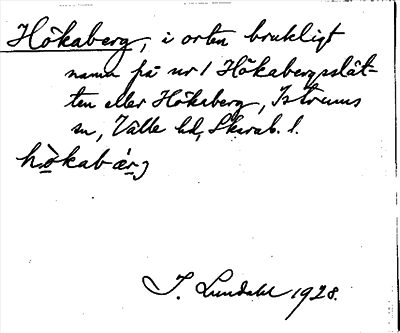 Hökaberg, i orten brukligt
namn på nr 1 Hökabergsslät-
ten eller Hökaberg, Istrums
sn, Valle hd, Skarab. l.
hökabärj
J. Lundahl 1928.